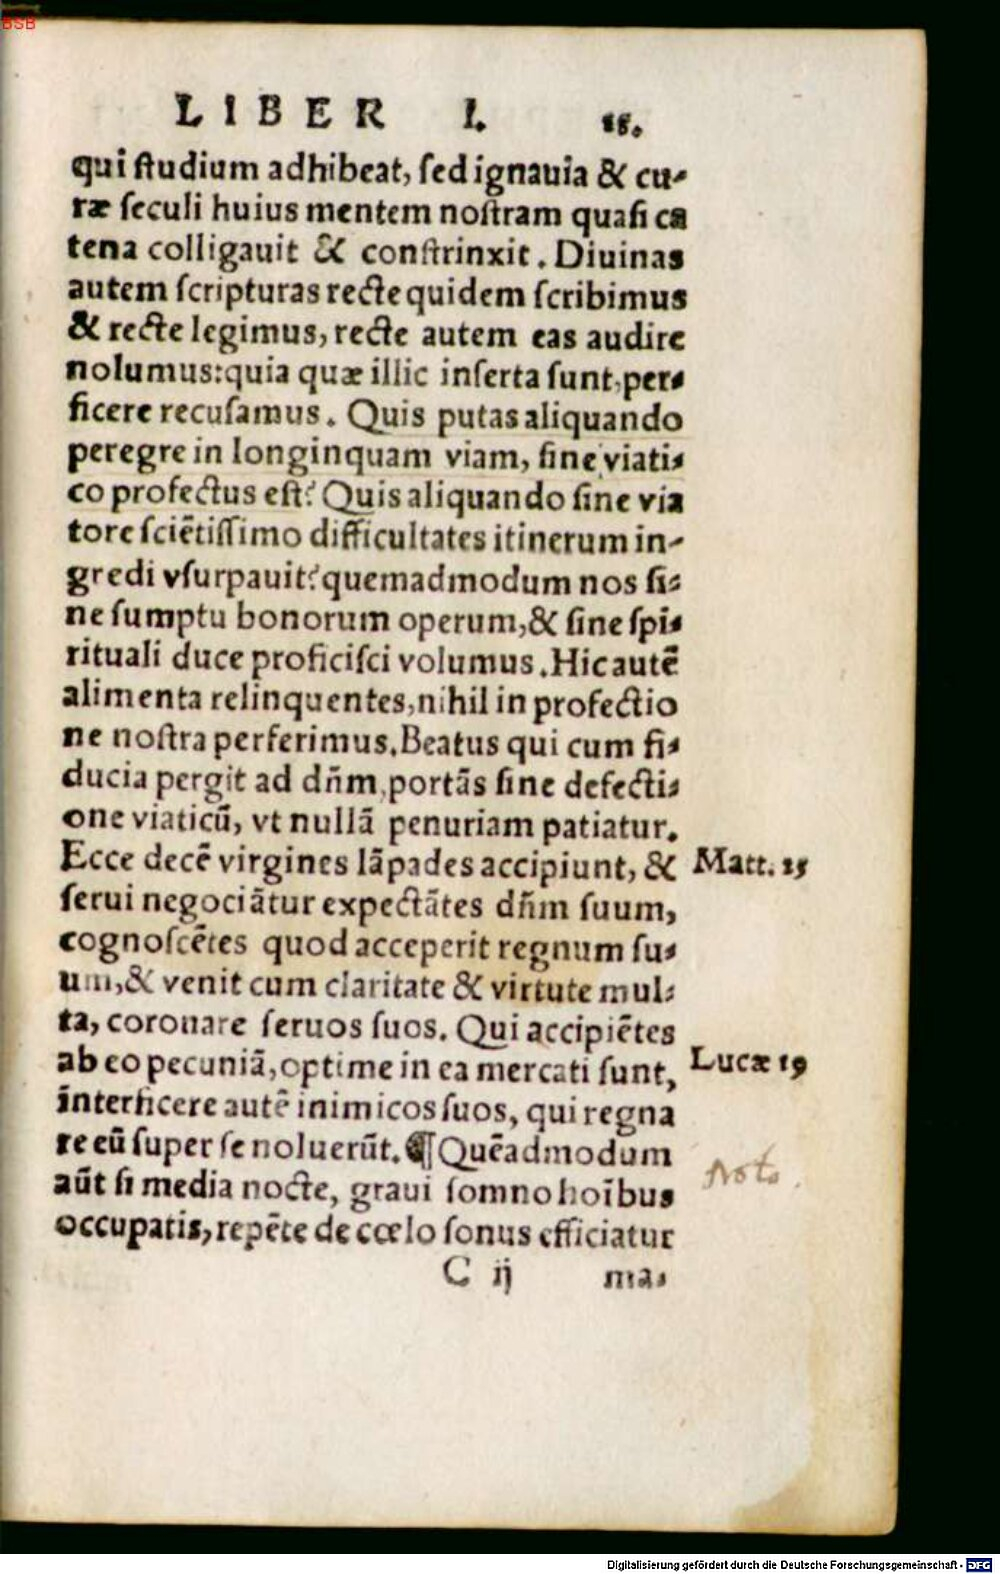 BSB
LIBER I. 18.
qui ſtudium adhibeat, ſed ignauia & cu-
ræ ſeculi huius mentem noſtram quaſi ca
tena colligauit & conſtrinxit. Diuinas
autem ſcripturas recte quidem ſcribimus
& recte legimus, recte autem eas audire
nolumus: quia quæ illic inſerta ſunt, per-
ficere recuſamus. Quis putas aliquando
peregre in longinquam viam, ſine viati-
co profectus eſt? Quis aliquando ſine via
tore ſciẽtiſſimo difficultates itinerum in-
gredi vſurpauit? quemadmodum nos ſi-
ne ſumptu bonorum operum, & ſine ſpi-
rituali duce proficiſci volumus. Hic autẽ
alimenta relinquentes, nihil in profectio
ne noſtra perferimus. Beatus qui cum fi-
ducia pergit ad dñm, portãs ſine defecti-
one viaticũ, vt nullã penuriam patiatur.
Ecce decẽ virgines lãpades accipiunt, & Matt. 25
ſerui negociãtur expectãtes dñm ſuum,
cognoſcẽtes quod acceperit regnum ſu-
um, & venit cum claritate & virtute mul-
ta, coronare ſeruos ſuos. Qui accipiẽtes
ab eo pecuniã, optime in ea mercati ſunt, Lucæ 19
interficere autẽ inimicos ſuos, qui regna
re eũ ſuper ſe noluerũt. ¶ Quẽadmodum
aũt ſi media nocte, graui ſomno hoĩbus Noto.
occupatis, repẽte de cœlo ſonus efficiatur
C ij ma-
Digitalisierung gefördert durch die Deutsche Forschungsgemeinschaft - DFG